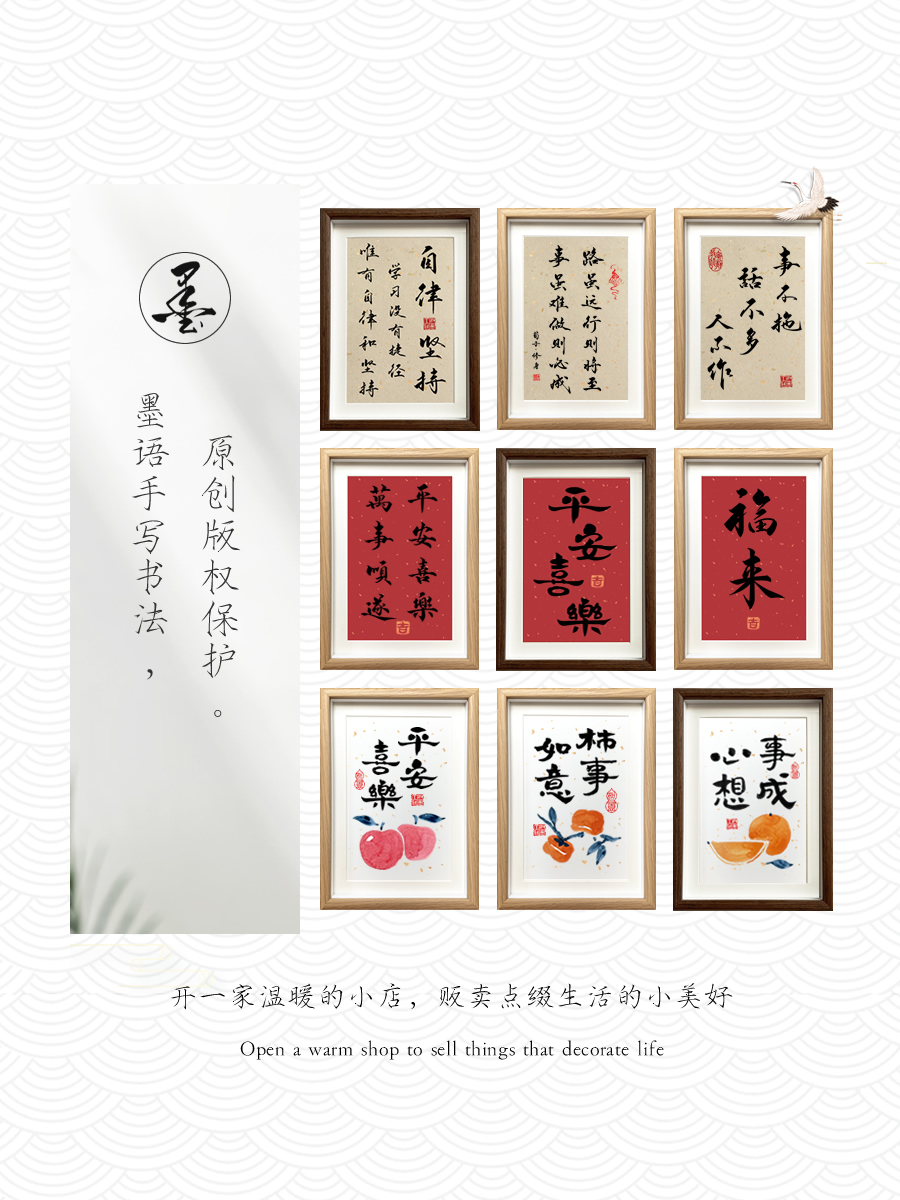 墨
墨语手写书法，
原创版权保护。
自律
坚持
学习没有捷径
唯有自律和坚持
路虽远行则将至
事虽难做则必成
荀子·修身
事不拖
話不多
人不作
平安喜樂
萬事順遂
吉
平
安
喜
樂
吉
福
来
吉
平安
喜樂
柿事
如意
事成
心想
开一家温暖的小店，贩卖点缀生活的小美好
Open a warm shop to sell things that decorate life